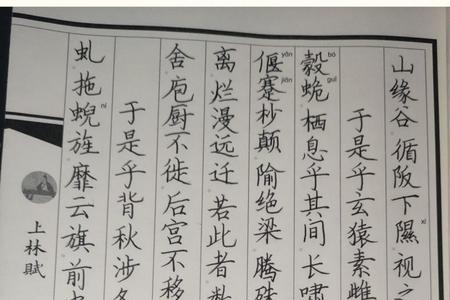 山缘谷循阪下隰视之
xí
于是乎玄猿素雌
bó
毂蛫栖息乎其间长啸
guǐ
yǎn
偃蹇杪颠隃绝梁腾殊
jiǎn
离烂漫远迁若此者数
舍庖厨不徙后宫不移
于是乎背秋涉冬
虬拖蜺旌靡云旗前
ní
上林赋